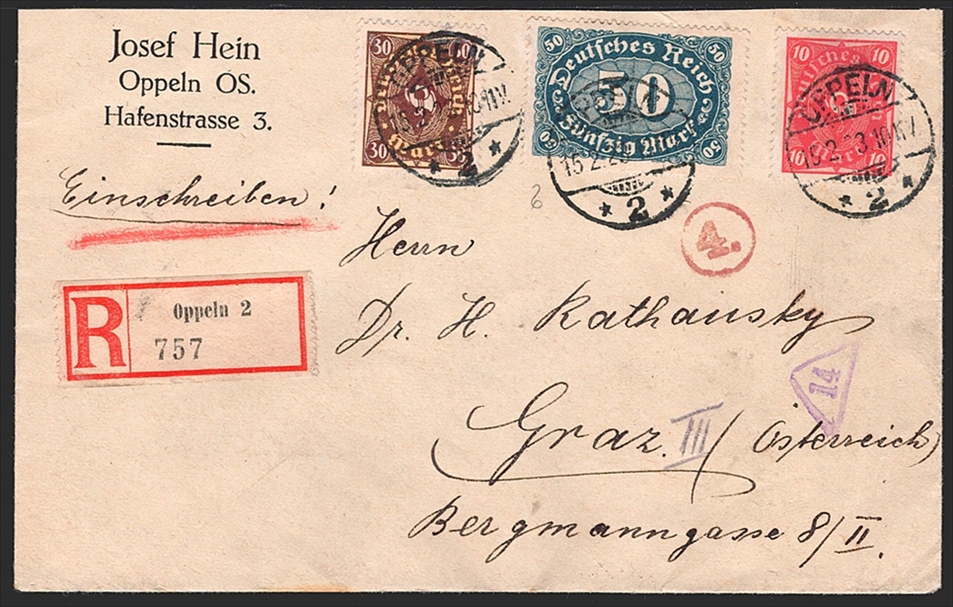 Josef Hein
Oppeln OS.
Hafenstrasse 3.
30 30
Mark
30 30
50 50
Deutsches Reich
50
Fünfzig Mark
50 50
10 10
Deutsches
10 10
OPPELN
2
15.2.23
2
OPPELN
15.2.23.10-11V
2
Einschreiben!
6
4.
Herrn
R
Oppeln 2
757
Dr. H. Kathausky
14
Graz. III (Österreich)
Bergmanngasse 8/II.